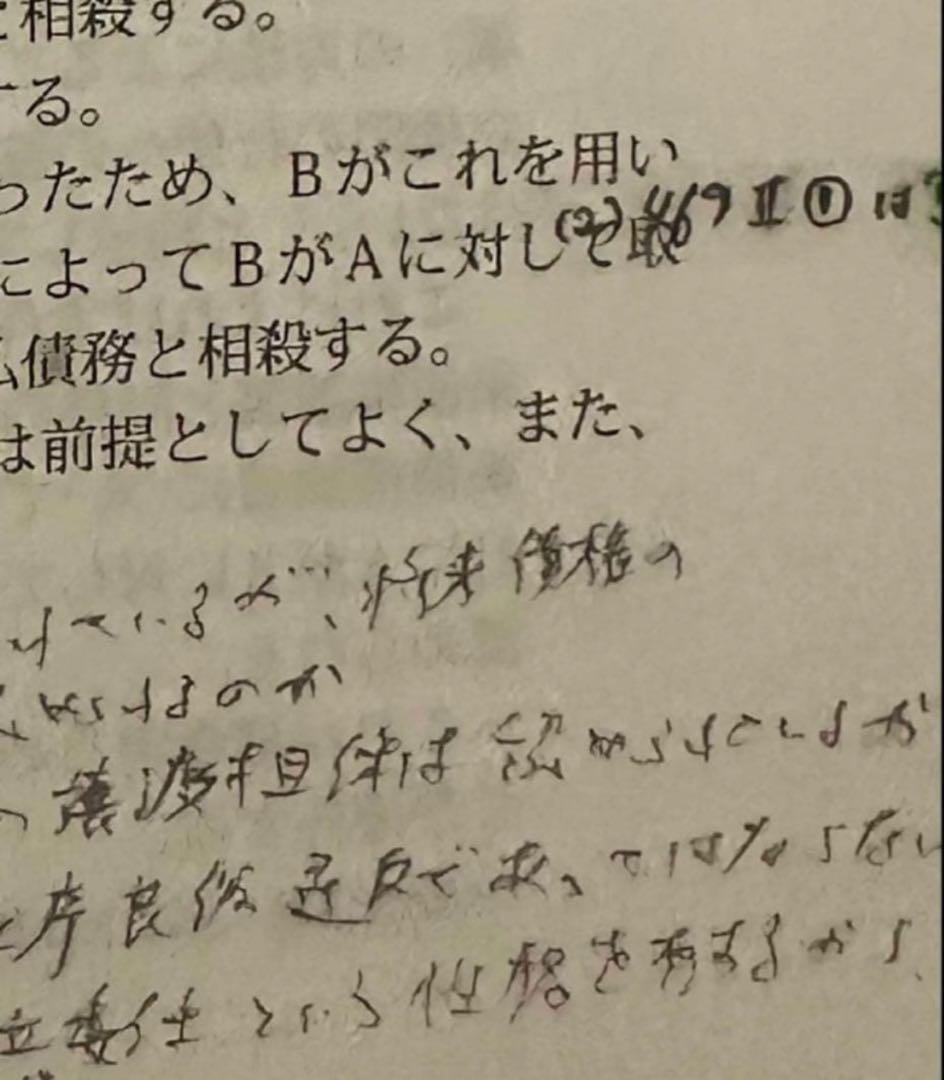 と相殺する。
する。
ったため、Bがこれを用い
(2) 469 Ⅱ ① は
によってBがAに対して取
債務と相殺する。
は前提としてよく、また、
ているが…、将来債権の
するのか
譲渡担保は認められているが
序良俗違反であってはならない
という性格を有するから、